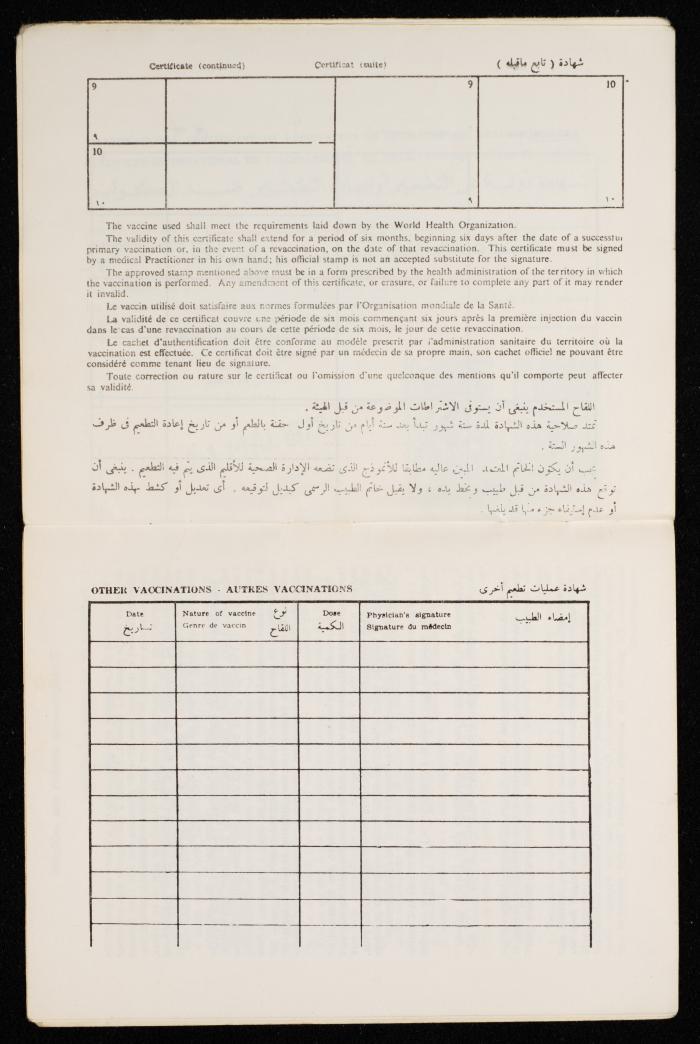 Certificate (continued) Certificat (suite) شهادة ( تابع ماقبله )
9 9 10
٩
10
١٠ ٩ ١٠
The vaccine used shall meet the requirements laid down by the World Health Organization.
The validity of this certificate shall extend for a period of six months, beginning six days after the date of a successful
primary vaccination or, in the event of a revaccination, on the date of that revaccination. This certificate must be signed
by a medical Practitioner in his own hand; his official stamp is not an accepted substitute for the signature.
The approved stamp mentioned above must be in a form prescribed by the health administration of the territory in which
the vaccination is performed. Any amendment of this certificate, or erasure, or failure to complete any part of it may render
it invalid.
Le vaccin utilisé doit satisfaire aux normes formulées par l'Organisation mondiale de la Santé.
La validité de ce certificat couvre une période de six mois commençant six jours après la première injection du vaccin
dans le cas d'une revaccination au cours de cette période de six mois, le jour de cette revaccination.
Le cachet d'authentification doit être conforme au modèle prescrit par l'administration sanitaire du territoire où la
vaccination est effectuée. Ce certificat doit être signé par un médecin de sa propre main, son cachet officiel ne pouvant être
considéré comme tenant lieu de signature.
Toute correction ou rature sur le certificat ou l'omission d'une quelconque des mentions qu'il comporte peut affecter
sa validité.
اللقاح المستخدم ينبغى أن يستوفى الاشتراطات الموضوعة من قبل الهيئة .
تمتد صلاحية هذه الشهادة لمدة ستة شهور تبدأ بعد ستة أيام من تاريخ أول حقنة بالطعم أو من تاريخ إعادة التطعيم فى ظرف
هذه الشهور الستة .
يجب أن يكون الخاتم المعتمد المبين عاليه مطابقا للأنموذج الذى تضعه الإدارة الصحية للأقليم الذى يتم فيه التطعيم . ينبغى أن
توقع هذه الشهادة من قبل طبيب وبخط يده ، ولا يقبل خاتم الطبيب الرسمى كبديل لتوقيعه . أى تعديل أو كشط بهذه الشهادة
أو عدم إستيفاء جزء منها قد يلغيها .
OTHER VACCINATIONS - AUTRES VACCINATIONS شهادة عمليات تطعيم أخرى
Date Nature of vaccine نوع Dose Physician's signature إمضاء الطبيب
تاريخ Genre de vaccin اللقاح الكمية Signature du médecin